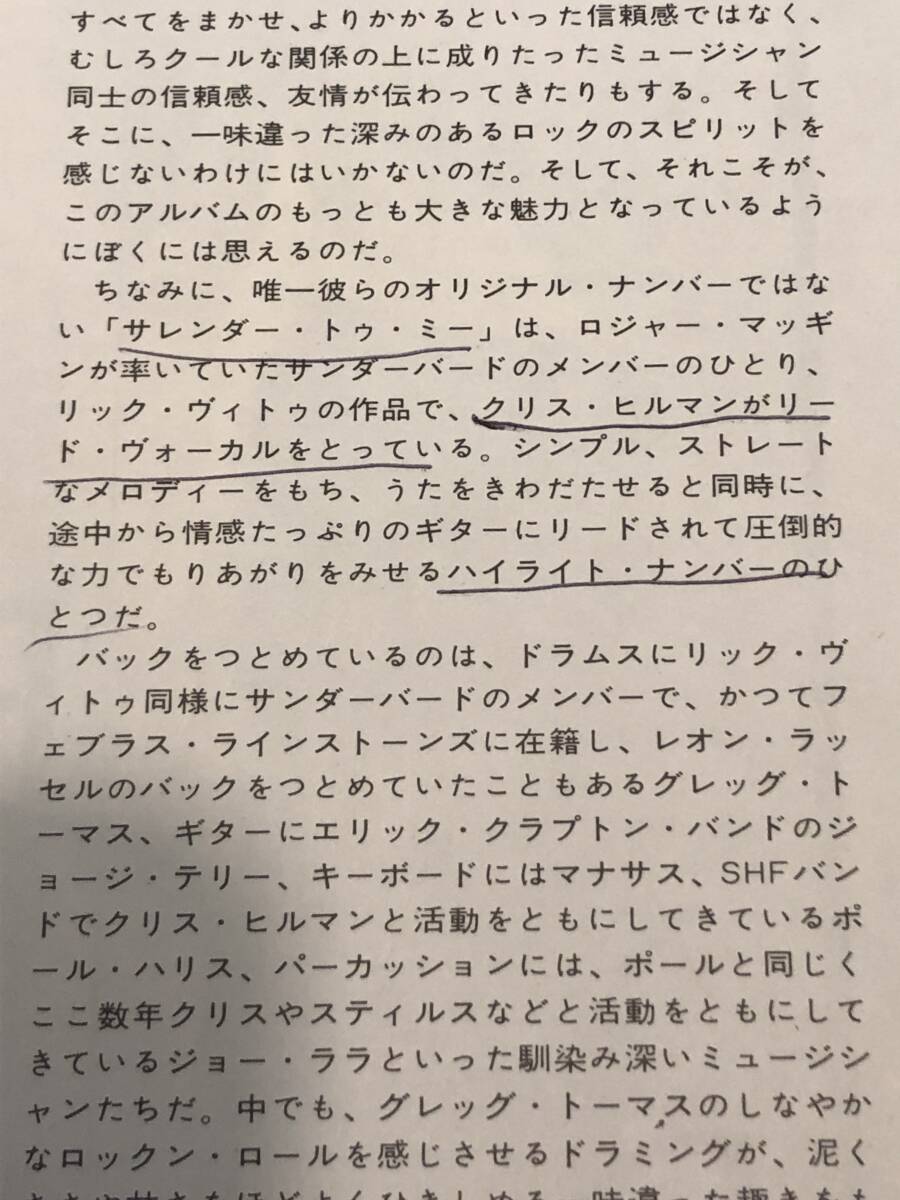 すべてをまかせ、よりかかるといった信頼感ではなく、
むしろクールな関係の上に成りたったミュージシャン
同士の信頼感、友情が伝わってきたりもする。そして
そこに、一味違った深みのあるロックのスピリットを
感じないわけにはいかないのだ。そして、それこそが、
このアルバムのもっとも大きな魅力となっているよう
にぼくには思えるのだ。
ちなみに、唯一彼らのオリジナル・ナンバーではな
い「サレンダー・トゥ・ミー」は、ロジャー・マッギ
ンが率いていたサンダーバードのメンバーのひとり、
リック・ヴィトゥの作品で、クリス・ヒルマンがリー
ド・ヴォーカルをとっている。シンプル、ストレート
なメロディーをもち、うたをきわだたせると同時に、
途中から情感たっぷりのギターにリードされて圧倒的
な力でもりあがりをみせるハイライト・ナンバーのひ
とつだ。
バックをつとめているのは、ドラムスにリック・ヴ
ィトゥ同様にサンダーバードのメンバーで、かつてフ
ェブラス・ラインストーンズに在籍し、レオン・ラッ
セルのバックをつとめていたこともあるグレッグ・ト
ーマス、ギターにエリック・クラプトン・バンドのジ
ョージ・テリー、キーボードにはマナサス、SHFバン
ドでクリス・ヒルマンと活動をともにしてきているポ
ール・ハリス、パーカッションには、ポールと同じく
ここ数年クリスやスティルスなどと活動をともにして
きているジョー・ララといった馴染み深いミュージシ
ャンたちだ。中でも、グレッグ・トーマスのしなやか
なロックン・ロールを感じさせるドラミングが、泥く